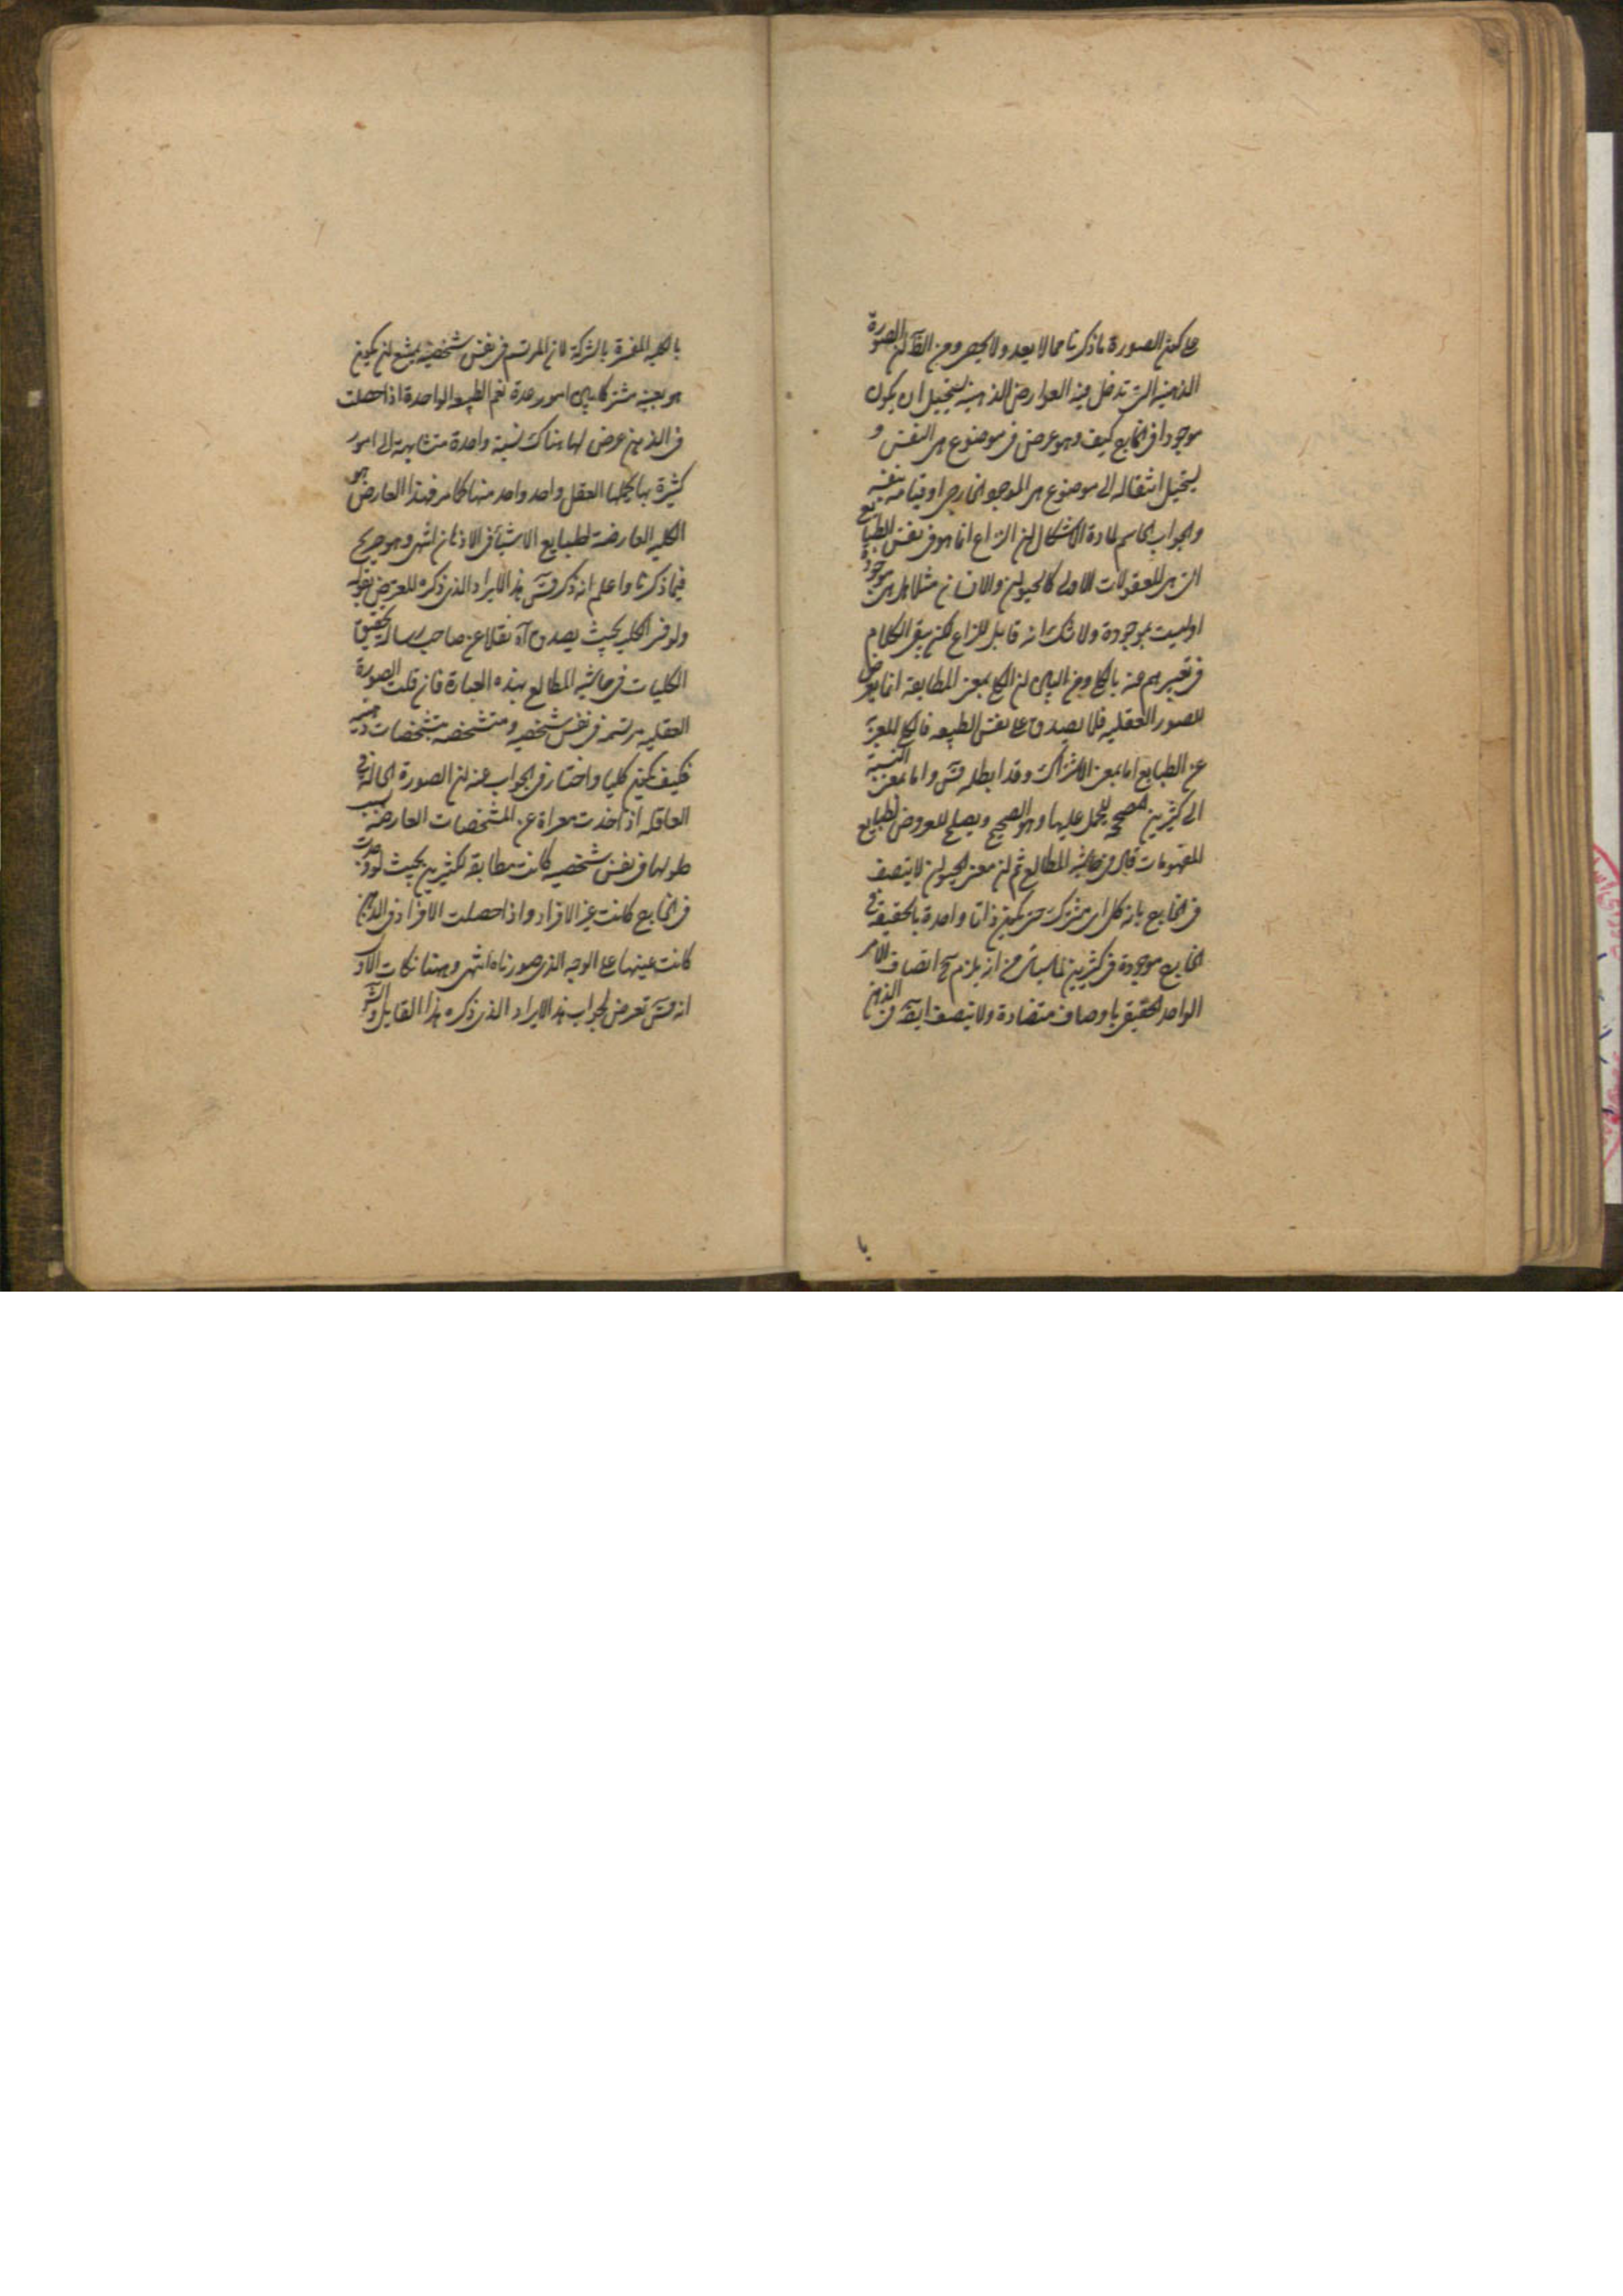 على كون الصورة ما ذكرنا مما لا يعد ولا يحصى ومن الظ ان الصورة
الذهنية التى تدخل فيه العوارض الذهنية يستحيل ان يكون
موجودا فى الخارج كيف وهو عرض فى موضوع هى النفس و
يستحيل انتقاله الى موضوع هى الموجو الخارجى او قيامه بنفسه
والجواب الحاسم لمادة الاشكال ان النزاع انما هو فى نفس الطبايع
التى هى المعقولات الاولى كالحيوان والانسان مثلا هل هى موجودة
او ليست بموجودة ولا شك انه قابل للنزاع لكن بقى الكلام
فى تعبيرهم عنه بالكلى ومن البين ان الكلى بمعنى المطابقة انما يعرض
للصور العقليه فلا يصدق على نفس الطبيعه فالكلى المعبر
عن الطبايع اما بمعنى الاشتراك وقد ابطله قس واما بمعنى النسبة
الى كثيرين المصححه للحمل عليها وهو الصحيح ويصلح للعروض لطبايع
المفهومات قال فى حاشيه المطالع ثم ان معنى الحيوان لا يتصف
فى الخارج بانه كلى اى مشترك حتى يكون ذاتا واحدة بالحقيقه فى
الخارج موجودة فى كثيرين لما سياتى من انه يلزم ح اتصاف الامر
الواحد الحقيقى باوصاف متضادة ولا يتصف ايضا فى الذهن
با
بالكليه المفسرة بالشركة لان المرتسم فى نفس شخصيه يمتنع ان يكون
هو بعينه مشتركا بين امور عدة نعم الطبيعه الواحدة اذا حصلت
فى الذهن عرض لها هناك نسبة واحدة متشابهة الى امور
كثيرة بها يحملها العقل واحد واحد منها كما مر فهذا العارض هو
الكليه العارضة لطبايع الاشياء فى الاذهان انتهى وهو صريح
فيما ذكرنا واعلم انه ذكر قس هذا الايراد الذى ذكره المعترض بقوله
ولو فسر الكلى بحيث يصدق اه نقلا عن صاحب رسالة تحقيق
الكليات فى حاشيه المطالع بهذه العبارة فان قلت الصورة
العقليه مرتسمة فى نفس شخصيه ومتشخصه بتشخصات ذهنيه
فكيف يكون كليا واختار فى الجواب عنه ان الصورة الحالة فى
العاقله اذا اخذت معراة عن المشخصات العارضة بسبب
حلولها فى نفس شخصيه كانت مطابقة لكثيرين بحيث لو وجدت
فى الخارج كانت عين الافراد واذا حصلت الافراد فى الذهن
كانت عينها على الوجه الذى صورناه انتهى وههنا نكات الاول
انه قس تعرض لجواب هذا الايراد الذى ذكره هذا القايل